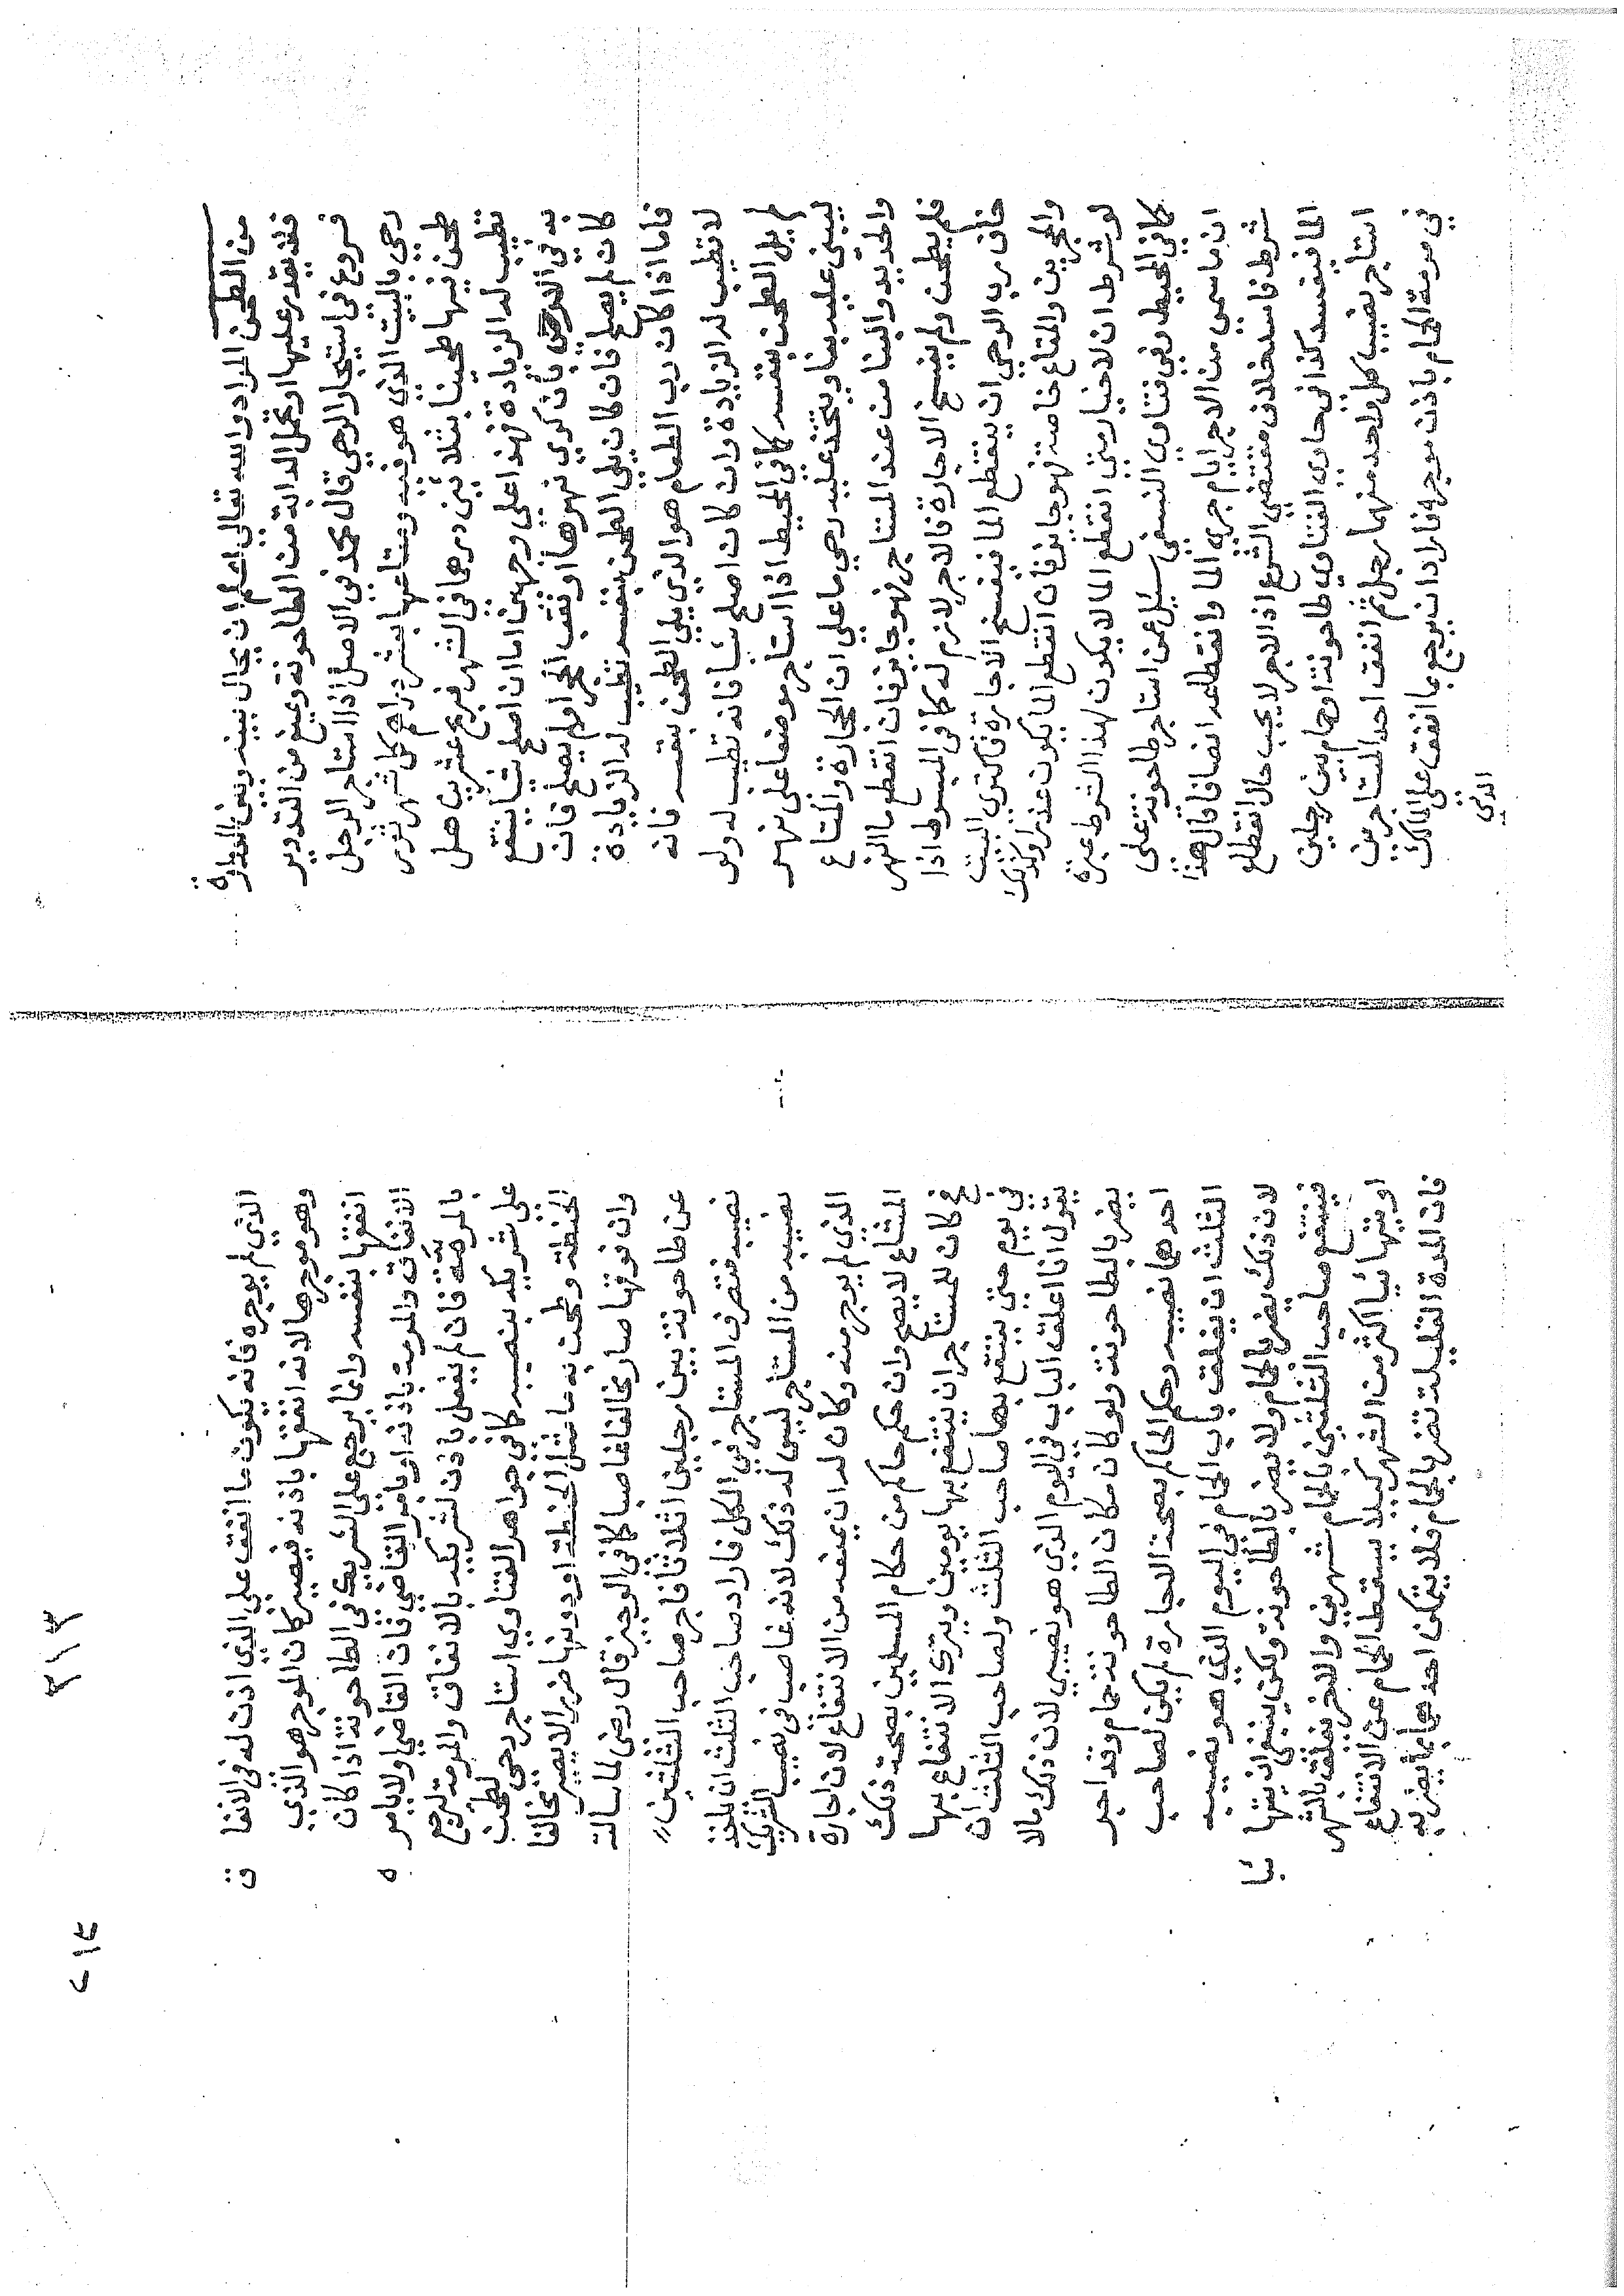 من الطحن المراد والله تعالى اعلم ان يحال بينه وبين الدوارة
فلا يقدر عليها او تحمل الدابة من الطاحونة وعينع من التدوير
فروع في استيجار الرحي قال محمد في الاصل اذا استاجر الرجل
رحي بالبيت الذي هو فيه ومتاعها بعشر دراهم كل شهر
طحن فيها طحينا بثلاثين درهما في الشهر فربح عشرين هل
تطيب له الزيادة فهذا على وجهين اما ان اصلح شيا ينتفع
به في الارض بأن كري نهرها او نقب الحجر او لم يصلح فان
كان لم يصلح فان كان يلي الطحن بنفسه تطيب له الزيادة
فاما اذا كان رب الطعام هو الذي يلي الطحن بنفسه فانه
لا تطيب له الزيادة وان كان اصلح شيا فانه تطيب له ولو
لم يل الطحن بنفسه كما في المحيط اذا استاجر موضعا على نهر
ليبني عليه بيتا ويتخذ عليه رحي ما على ان الحجارة والمتاع
والحديد والبنا من عند المستاجر فهو جايز فان انقطع ما النهر
فلم يطحن ولم يفسخ الاجارة فالاجر لازم له كما في المبسوط اذا
خاف رب الرحي ان ينقطع الما فيفسخ الاجارة فاكتري البيت
والحجرين والمتاع خاصة فهو جايز فان انقطع الما يكون عذرا وكذلك
لو شرط ان لا خيار متى انقطع الما لا يكون لهذا الشرط عبرة
كما في المحيط وفي فتاوي النسفي سئل عن استاجر طاحونة على
ان ما سمى من الاجر ايام جري الما وانقطاعه ايضا قال هذا
شرط فاسد خلاف مقتضي الشرع اذ الاجر لا يجب حال انقطاع
الما فيفسد كذا في حاوي الفتاوي طاحونة او حمام بين رجلين
استاجر نصيب كل واحد منهما رجل ثم انفق احد المستاجرين
في مرمة الحمام باذن موجره فاراد ان يرجع بما انفق على المالك
الذي
الذي لم يوجره فانه يكون ما انفق على الذي اذن له في الانفا ق
وهو موجرها لانه انفقها باذنه فيصير كان الموجر هو الذي
انفقها بنفسه وانما يرجع على الشريك في الطاحونة اذا كان
الانفاق والمرمة باذنه او بامر القاضي فان القاضي ولا يامر ه
بالمرمة فان لم يفعل بأذن لشريكه بالانفاق والمرمة ليرجع
على شريكه بنصيبه كما في جواهر الفتاوي استاجر رحى لطحن
الحنطة وطحن به ما مثل الحنطة او دونها ضررا لا يصير مخالفا
وان فوقها صار مخالفا غاصبا كما في الوجيز قال رضى لما سالته
عن طاحونة بين رجلين اثلاثا فاجر صاحب الثلثين
نصيبه فتصرف المستاجر في الكل فاراد صاحب الثلث ان ياخذ
نصيبه من المستاجر ليس له ذلك لانه غاصب في نصيب الشريك
الذي لم يوجر منه وكان له ان يمنعه من الانتفاع لان اجارة
المشاع لا يصح وان حكم حاكم من حكام المسلمين بصحة ذلك
كان للمستاجر ان ينتفع بها يومين ويترك الانتفاع بها
في يوم حتى ينتفع بها صاحب الثلث ولصاحب الثلث ان
يقول انا اغلق الباب في اليوم الذي هو نصيبي لان ذلك مالا
يضر بالطاحونة ولو كان مكان الطاحونة حمام وقد اجر
احدهما نصيبه وحكم الحاكم بصحة الاجارة لم يكن لصاحب
الثلث ان يغلق باب الحمام في اليوم الذي هو نصيبه
لان ذلك يضر بالحمام ولا يضر بالطاحونة ولكن ينبغي ان يتها ئا
فينتفع صاحب الثلثين بالحمام شهرين والاخر يغلقه بالشهر
او يتهائيا اكثر من الشهر كيلا يسقط الحمام عن الانتفاع
فان المدة القليلة تضر بالحمام فلا يتمكن احدهما بما يضر به
٢١٣
٢١٤